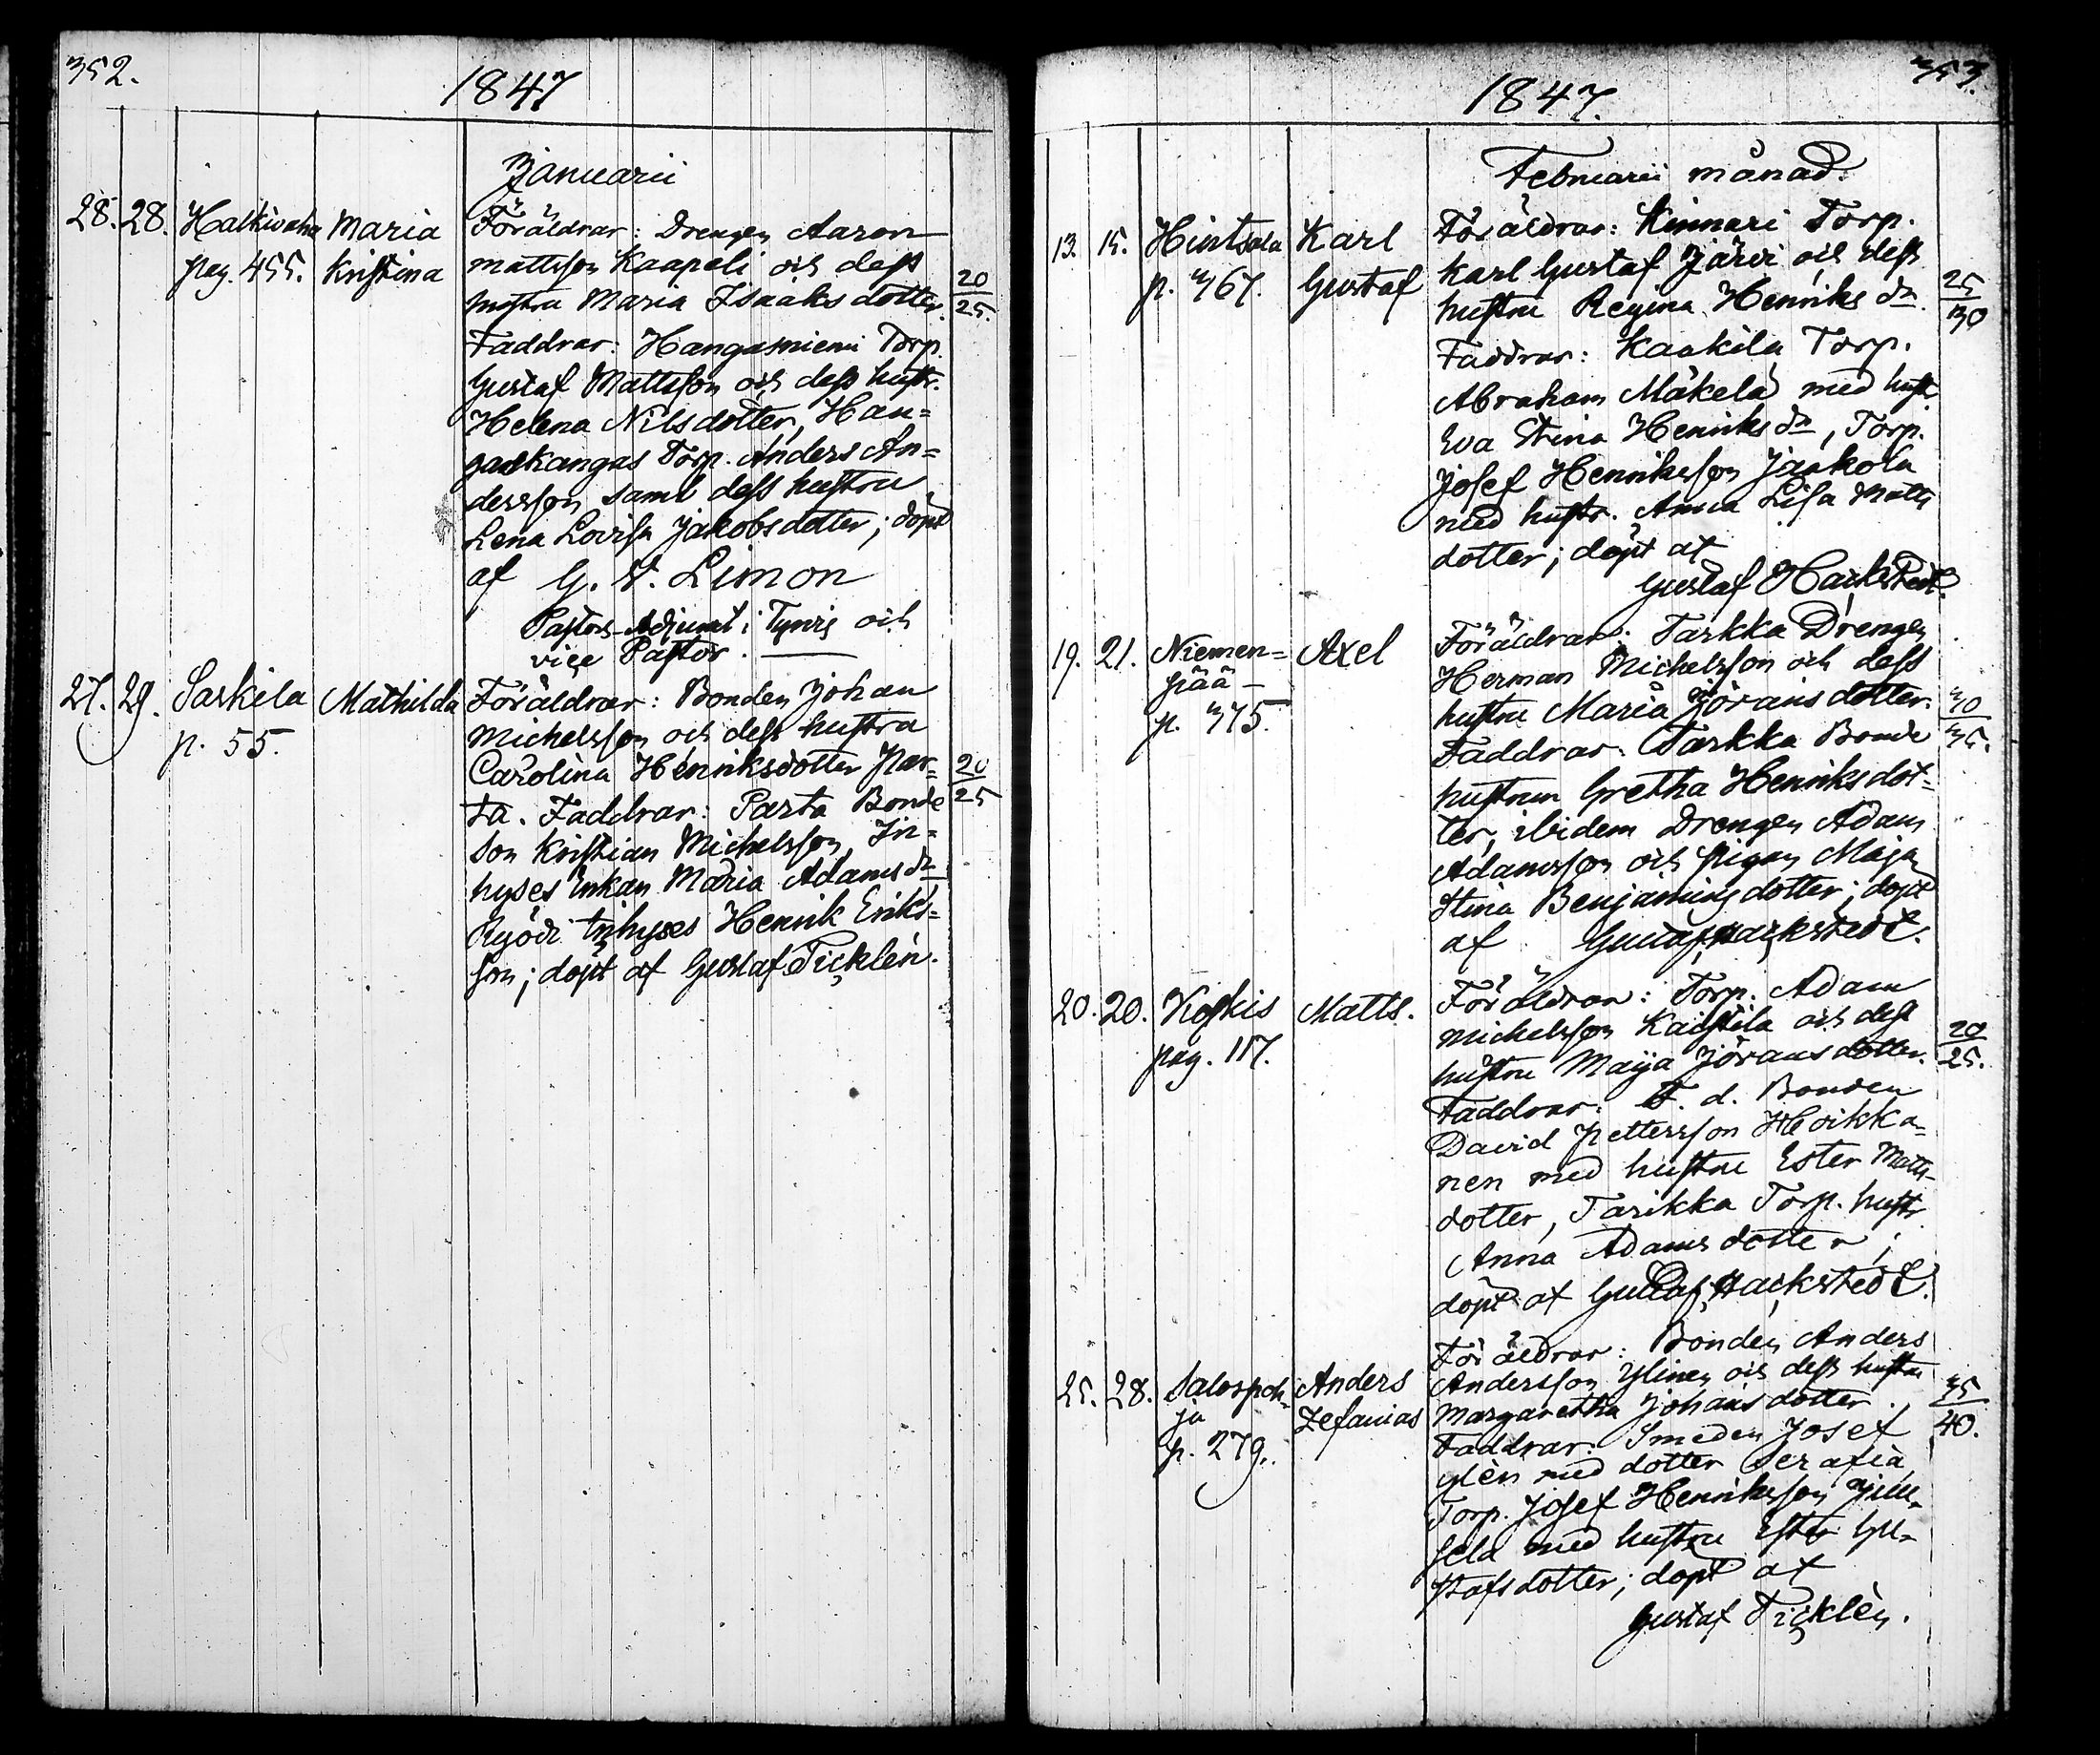 352.
1847
Januarii
28. 28. Halkivaha Maria Föräldrar: Drengen Aaron
pag. 455. Kristina Mattsson Kaapeli och dess
hustru Maria Isaaks dotter. 20/25.
Faddrar: Hangasniemi Torp.
Gustaf Mattsson och dess hustr.
Helena Nilsdotter, Han=
gaskangas Torp. Anders An=
dersson samt dess hustru
Lena Lovisa Jakobsdotter; döpt
af G. V. Limon
Pastors-Adjunt i Tyrvis och
vice Pastor.
27. 29. Sarkila Mathilda Föräldrar: Bonden Johan
p. 55. Michelsson och dess hustru
Carolina Henriksdotter Par= 20/25
ta. Faddrar: Parta Bonde
son Kristian Michelsson, In=
hyses Enkan Maria Adamsdr
Ryödi Inhyses Henrik Eriks=
son; döpt af Gustaf Ticklén.
353.
1847.
Februarii månad.
13. 15. Hintsala Karl Föräldrar: Kinnari Torp.
p. 367. Gustaf Karl Gustaf Järvi och dess
hustru Regina Henriks dr. 25/30
Faddrar: Kaakila Torp.
Abraham Mäkelä med hust.
Eva Stina Henriks dr, Torp.
Josef Henriksson Jaakola
med hustr. Anna Lisa Matts
dotter; döpt af
Gustaf Hackstedt.
19. 21. Niemen= Axel Föräldrar: Tarkka Drengen
pää Herman Michelsson och dess
p. 375. hustru Maria Jöransdotter. 30/35.
Faddrar: Tarkka Bonde
hustrun Gretha Henriksdot=
ter, ibidem Drengen Adam
Adamsson och pigan Maja
Stina Benjaminsdotter; döpt
af Gustaf Hackstedt.
20. 20. Koskis Matts. Föräldrar: Torp. Adam
pag. 117. Michelsson Kaistila och dess
hustru Maija Jöransdotter. 20/25.
Faddrar: F. d. Bonden
David Pettersson Heikka=
nen med hustru Ester Matts=
dotter, Tarikka Torp. hustr.
Anna Adamsdotter;
döpt af Gustaf Hackstedt.
25. 28. Salospoh= Anders Föräldrar: Bonden Anders
ja Zefanias Andersson Ylinen och dess hustru
p. 279. Margaretha Johansdotter. 35/40.
Faddrar: Smeden Josef
ylén med dotter Serafia
Torp. Josef Henriksson
med hustru Ester Gu=
stafsdotter; döpt af
Gustaf Ticklén.